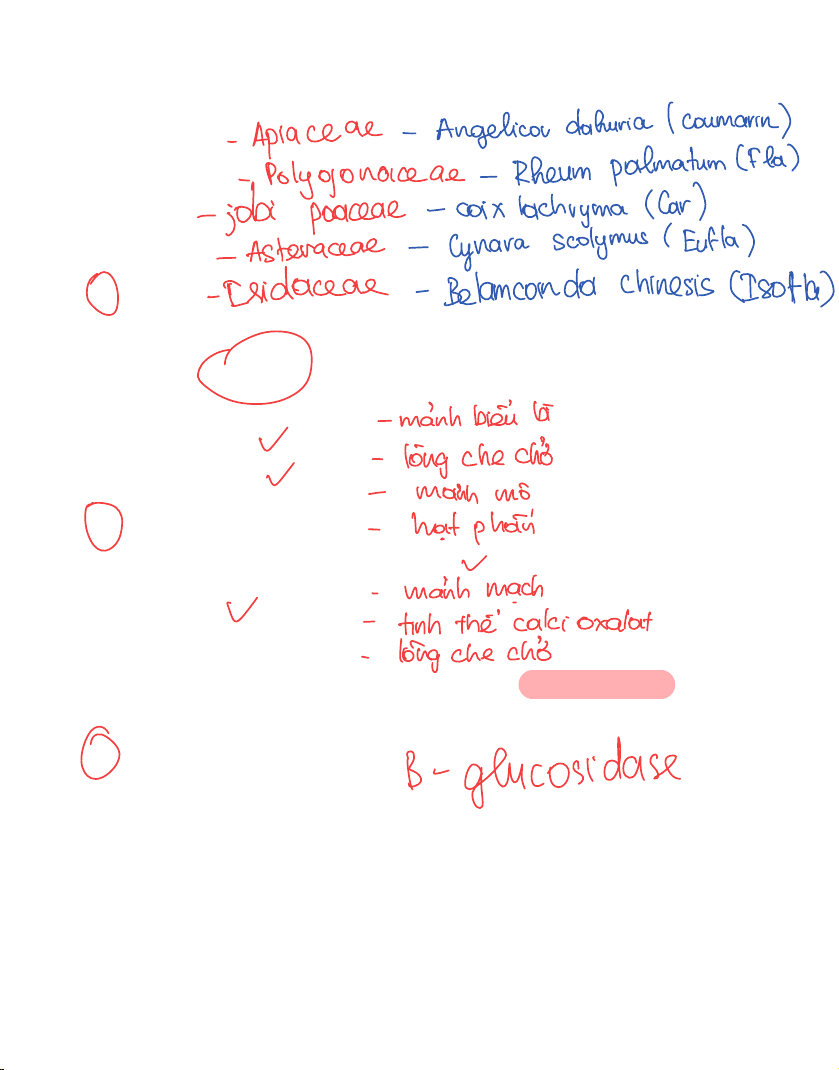 - Apiaceae - Angelicov dahuria (coumarin)
- Polygonaceae - Rheum palmatum (Fla)
- jobi poaceae - coix lachryma (Car)
- Asteraceae - Cynara scolymus (Eufla)
- Iridaceae - Belamcanda chinesis (Isofla)
- mảnh biểu bì
- lông che chở
- mảnh mô
- hạt phấn
- mảnh mạch
- tinh thể calci oxalat
- lông che chở
B - glucosidase